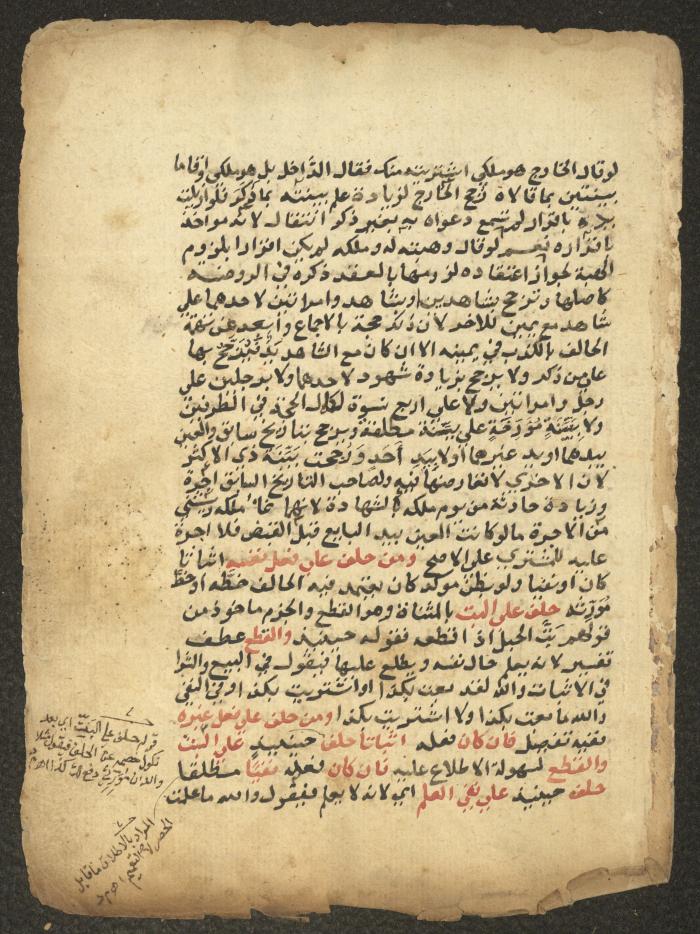 لو قال الخارج هو ملكي اشتريته منك فقال الداخل بل هو ملكي واقاما
بينتين بما قالاه رجح الخارج لزيادة علم بينته بما ذكر فلو ازيلت
يده باقرار لم تسمع دعواه به بغير ذكر انتقال لانه مواخذ
باقراره نعم لو قال وهبته له وملكه لم يكن اقرارا بلزوم
الهبة لجواز اعتقاده لزومها بالعقد ذكره في الروضة
كاصلها وترجح بشاهدين او بشاهد وامراتين لاحدهما على
شاهد مع يمين للاخر لان ذلك حجة بالاجماع وابعد عن تهمة
الحالف بالكذب في يمينه الا ان كان مع الشاهد يد فيرجح بها
على من ذكر ولا يرجح بزيادة شهود لاحدهما ولا برجلين على
رجل وامراتين ولا على اربع نسوة لكمال الحجة في الطرفين
ولا ببينة مؤرخة على بينة مطلقة ويرجح بتاريخ سابق والعين
بيدهما او بيد غيرهما او لا بيد احد ورجحت بينة ذي الاكثر
لان الاخرى لا تعارضها فيه ولصاحب التاريخ السابق اجرة
وزيادة حادثة من يوم ملكه بالشهادة لانهما نماء ملكه ويستثنى
من الاجرة ما لو كانت العين بيد البايع قبل القبض فلا اجرة
عليه للمشتري على الاصح ومن حلف على فعل نفسه اثباتا
كان او نفيا ولو بظن موكد كان يعتمد فيه الحالف خطه او خط
مورثه حلف على البت بالمثناة وهو القطع والجزم ماخوذ من
قولهم بت الحبل اذا قطعه فقوله حينيذ والقطع عطف
تفسير لانه يعلم حال نفسه ويطلع عليها فيقول في البيع والشرا
في الاثبات والله لقد بعت بكذا او اشتريت بكذا وفي النفي
والله ما بعت بكذا ولا اشتريت بكذا ومن حلف على فعل غيره
ففيه تفصيل فان كان فعله اثباتا حلف حينيذ على البت
والقطع لسهولة الاطلاع عليه فان كان فعله نفيا مطلقا
حلف حينيذ على نفي العلم اي لانه لا يعلم فيقول والله ما علمت
قوله حلف على البت اي بعد